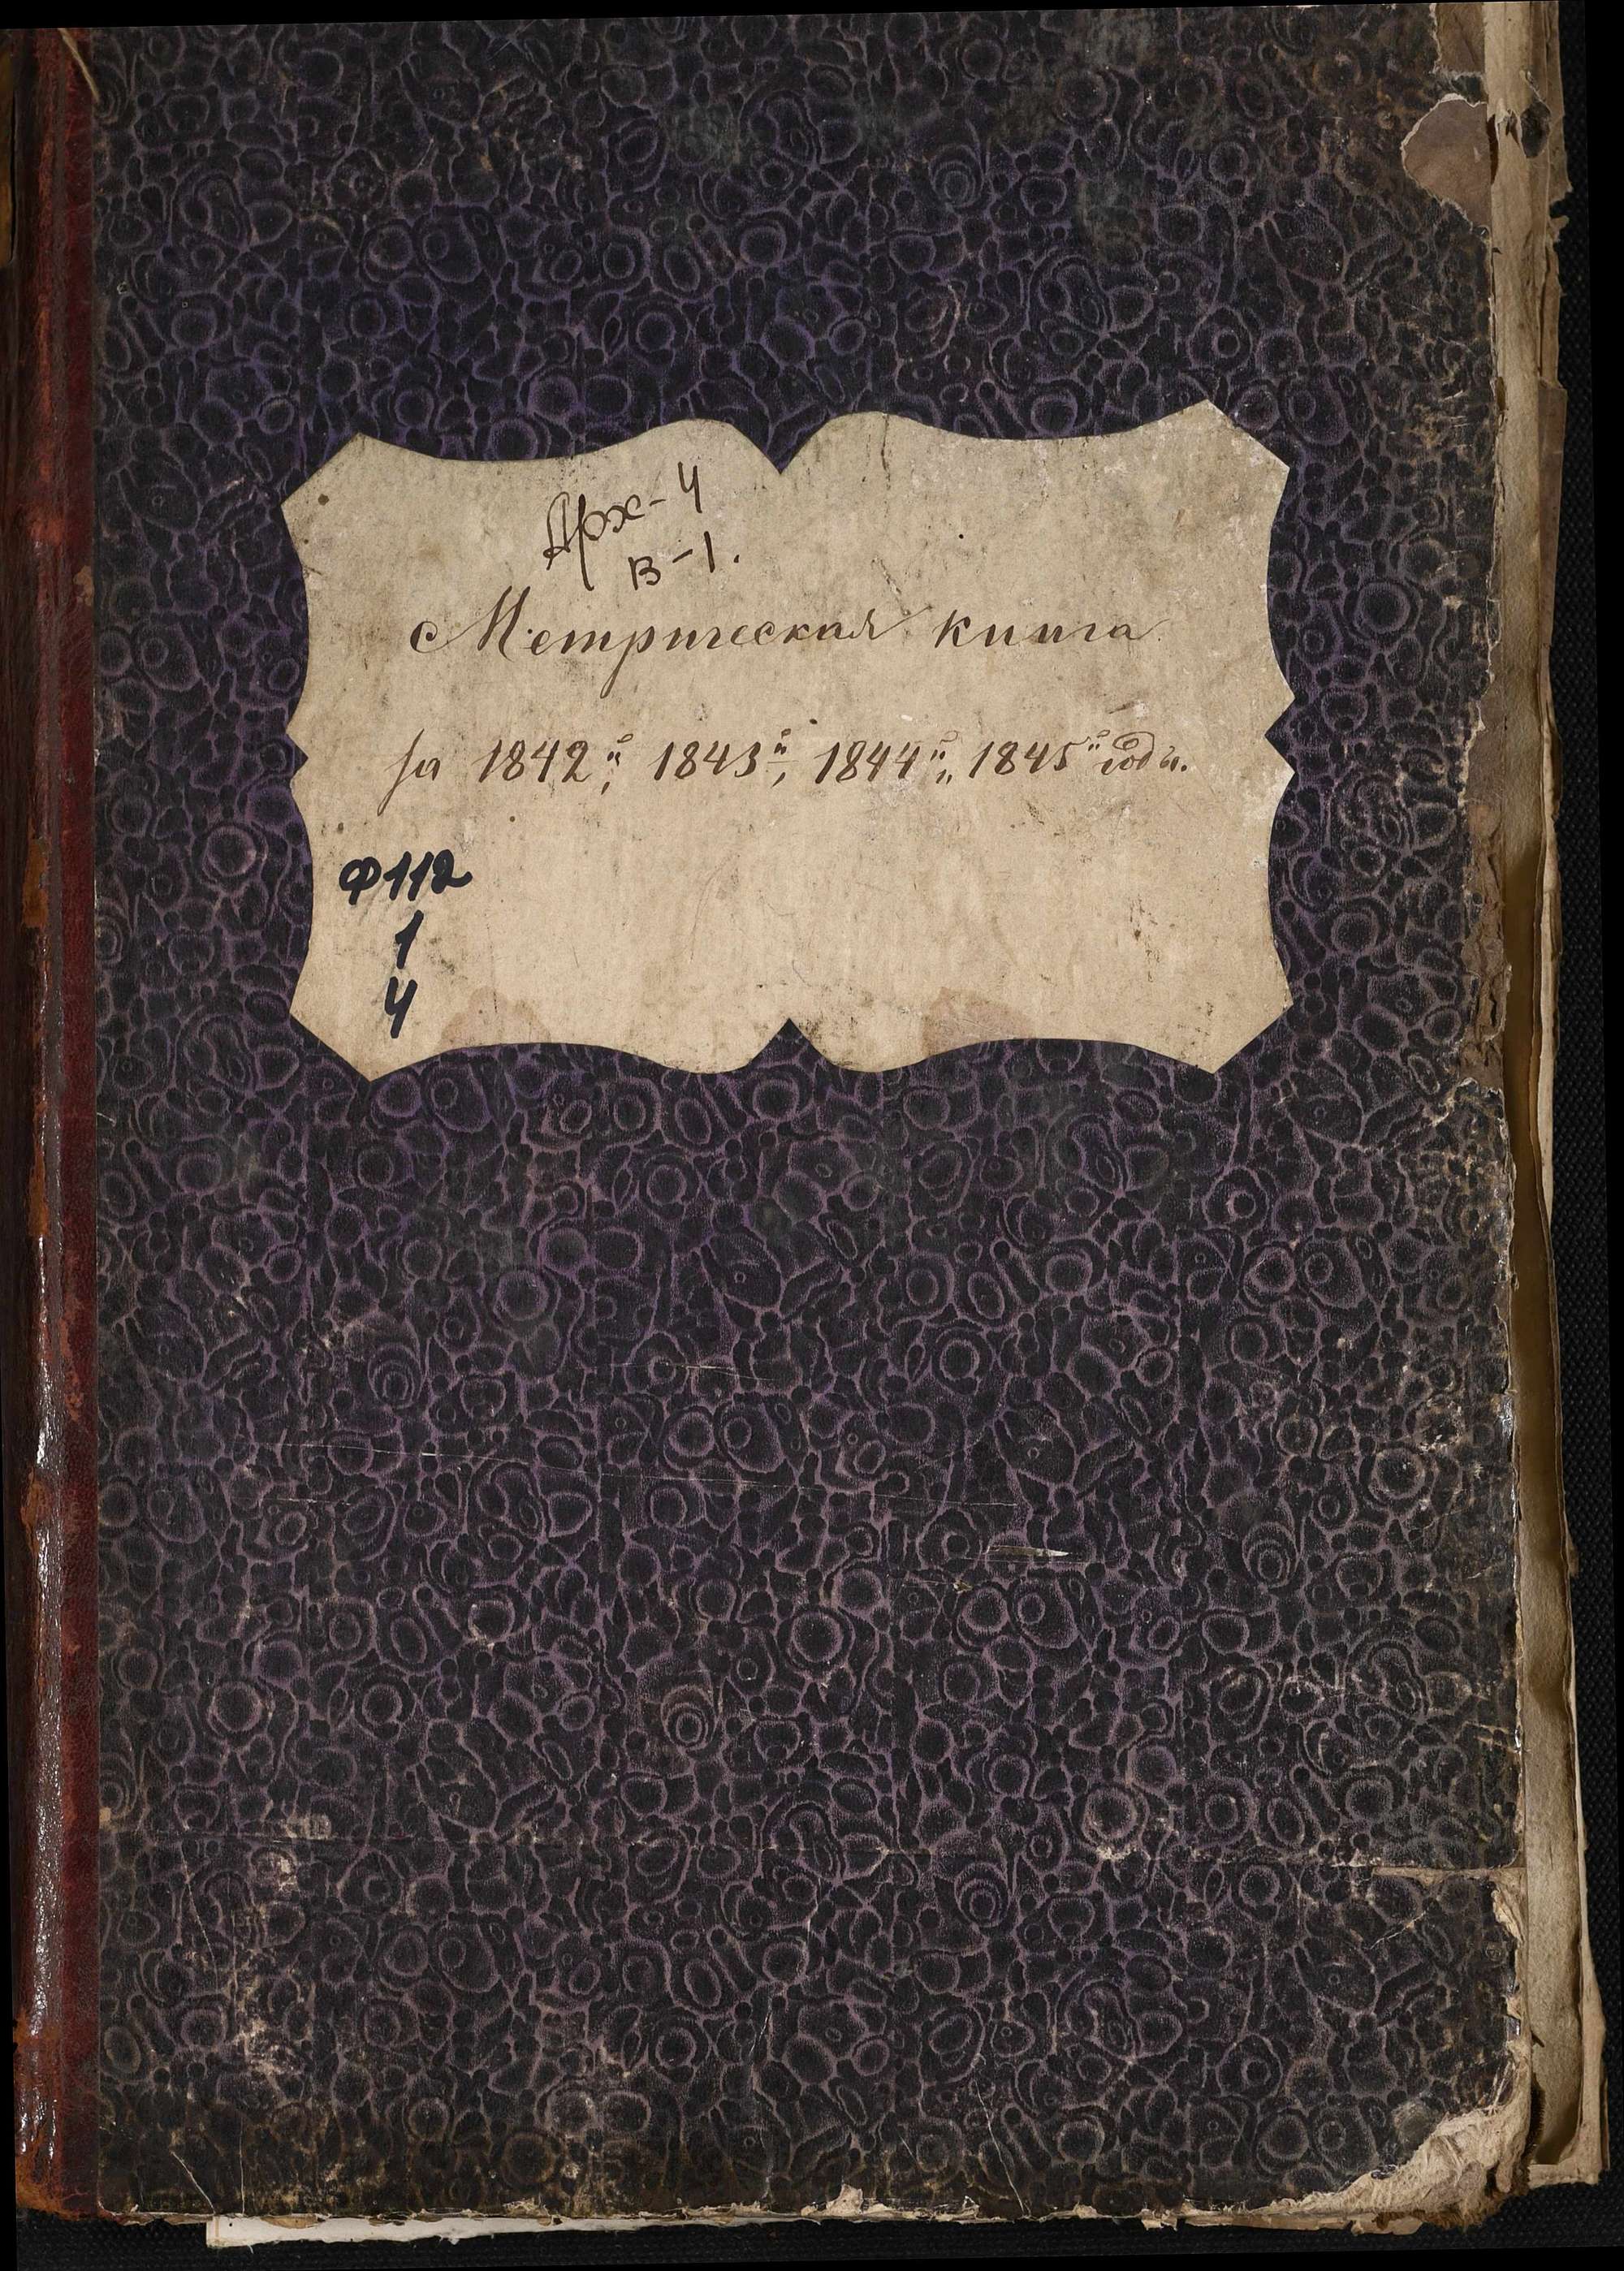 Арх-4
В-1.
Метрическая книга
за 1842й, 1843й, 1844й, 1845й годы.
Ф112
1
4